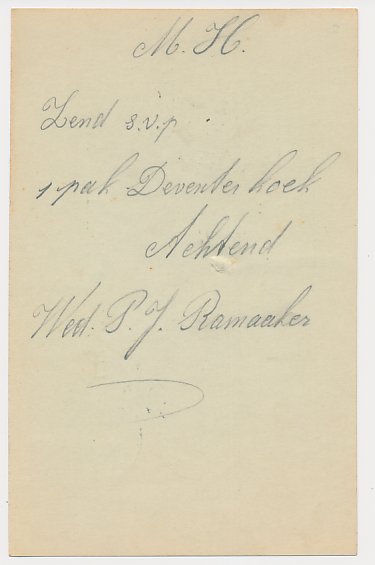 M. H.
Zend s.v.p.
1 pak Deventer koek
Achtend
Wed. P. J. Ramaaker